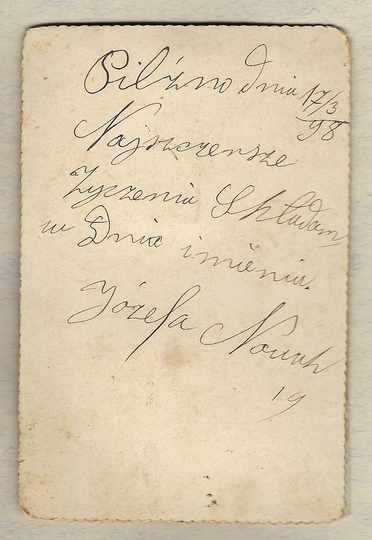 Pilźno dnia 17/3 98
Najszczersze
Życzenia Składam
w Dniu imienia.
Józefa Nowak
19